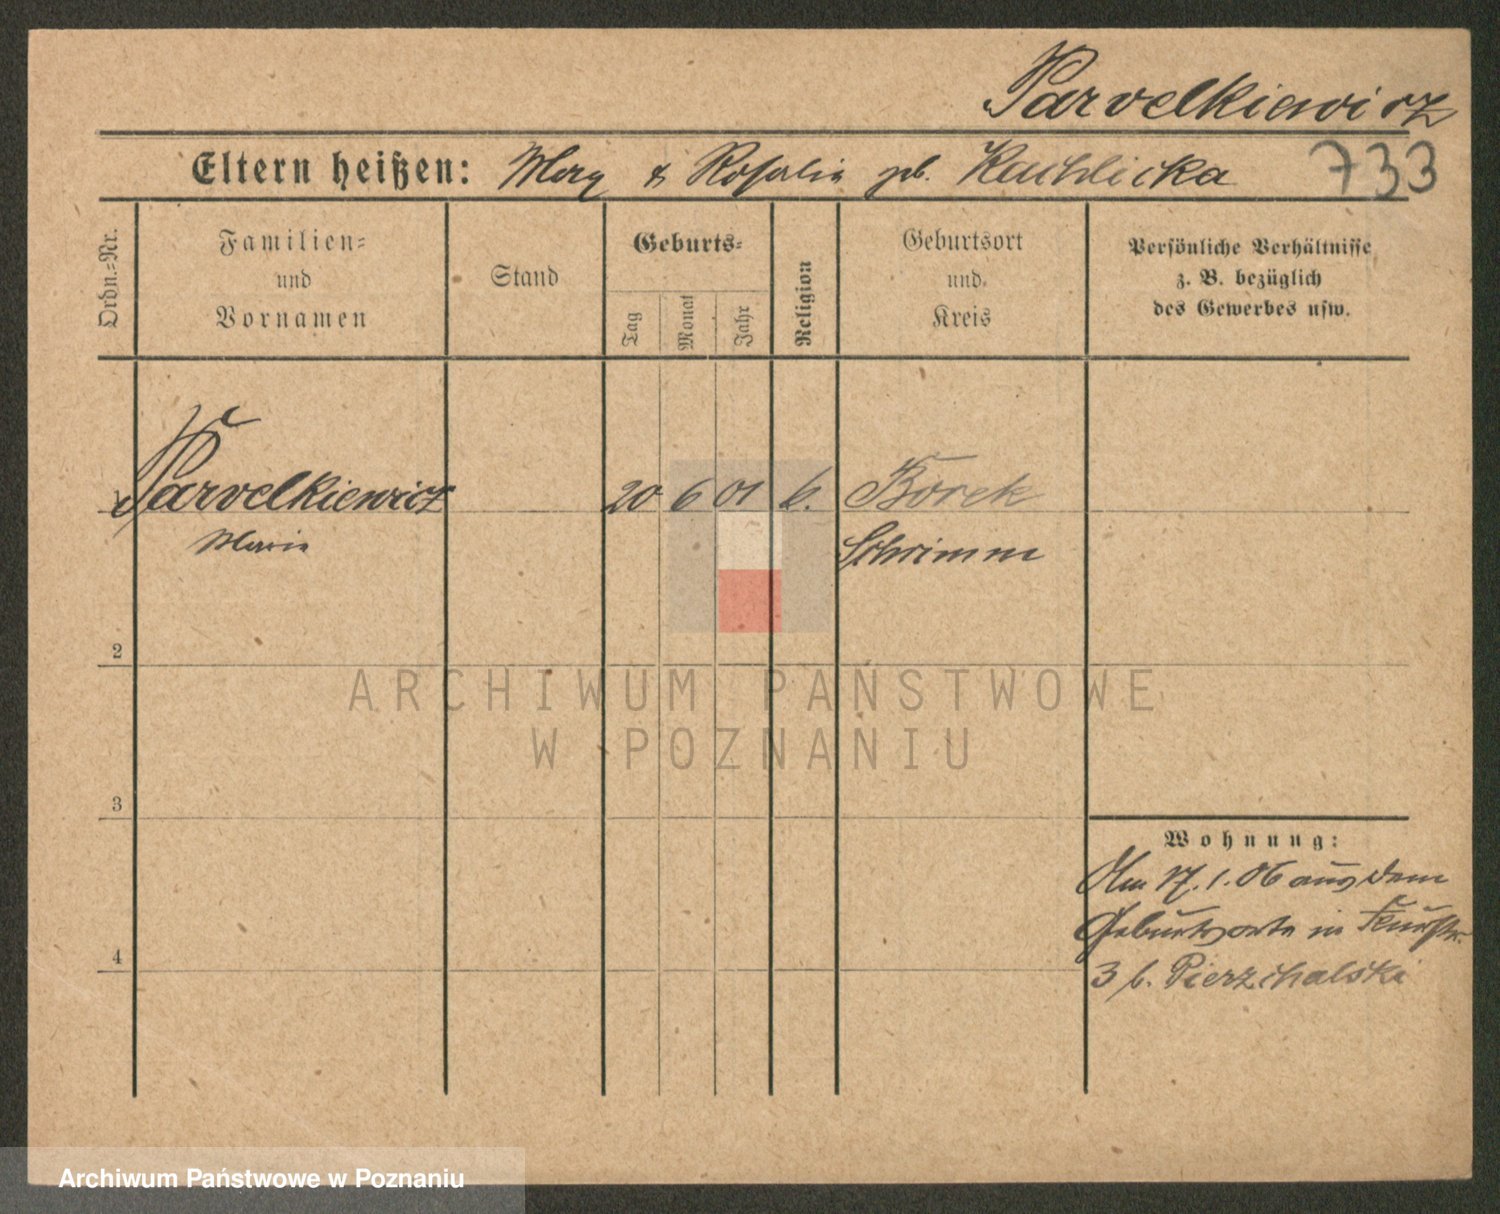 Parvelkiewicz
Eltern heißen: & Rosalie geb. 733
Ordn.-Nr.
Familien-
und
Vornamen
Stand
Geburts-
Tag
Monat
Jahr
Religion
Geburtsort
und
Kreis
Persönliche Verhältnisse
z. B. bezüglich
des Gewerbes usw.
1 Parvelkiewicz 20 6 01 k. Borek
Marie Schrimm
2
3
4
Wohnung:
Am 17.1.06 aus dem
Geburtsorte in
3 b. Pierzchalski
ARCHIWUM PAŃSTWOWE
W POZNANIU
Archiwum Państwowe w Poznaniu